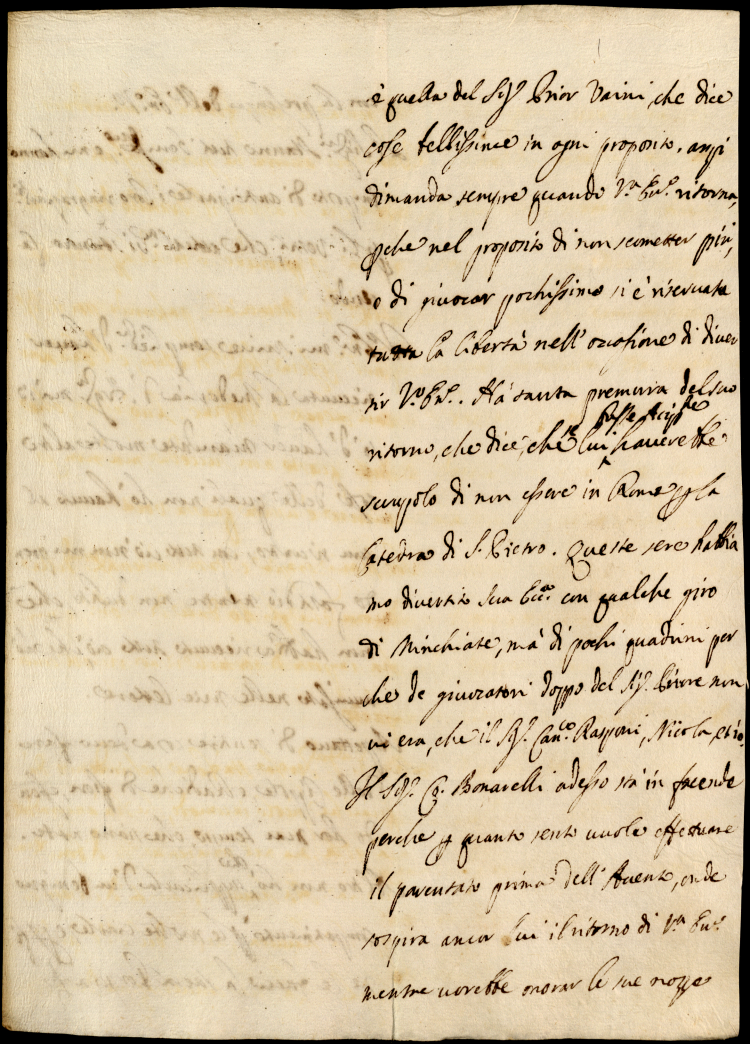 è quella del Sig.r Prior Vaini, che dice
cose bellissime in ogni proposito, anzi
dimanda sempre quando V.ra Em.a ritorna,
p che nel proposito di non scometter più,
o di giuocar pochissimo si è riservata
tutta la libertà nell' occasione di diver
tir V.ra Em.a. Há tanta premura del suo
ritorno, che dice, che se lui haverebbe
fusse
scrupolo di non essere in Roma p la
Catedra di S. Pietro. Queste sere habbia
mo divertito Sua Ecc.a con qualche giro
di Minchiate, má di pochi quadrini per
che de giuocatori doppo del Sig.r Priore non
vi era, che il Sig.r Can.co Rasponi, Nicola, et io.
Il Sig.r Co. Bonarelli adesso stà in facende
perche p quanto sento vuole effettuare
il parentato prima dell' Avento, onde
sospira ancor lui il ritorno di V.ra Em.a
mentre vorebbe onorar le sue nozze